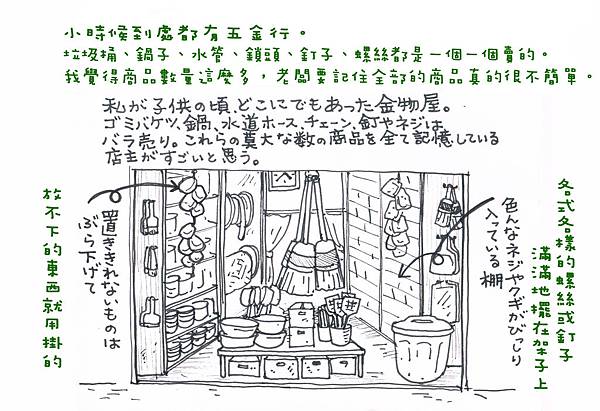 小時候到處都有五金行。
垃圾桶、鍋子、水管、鎖頭、釘子、螺絲都是一個一個賣的。
我覺得商品數量這麼多，老闆要記住全部的商品真的很不簡單。
私が子供の頃、どこにでもあった金物屋。
ゴミバケツ、鍋、水道ホース、チェーン、釘やネジは
バラ売り。これらの莫大な数の商品を全て記憶している
店主がすごいと思う。
色んなネジやクギがびっしり
入っている棚
各式各樣的螺絲或釘子
滿滿地擺在架子上
置ききれないものは
ぶら下げて
放不下的東西就用掛的